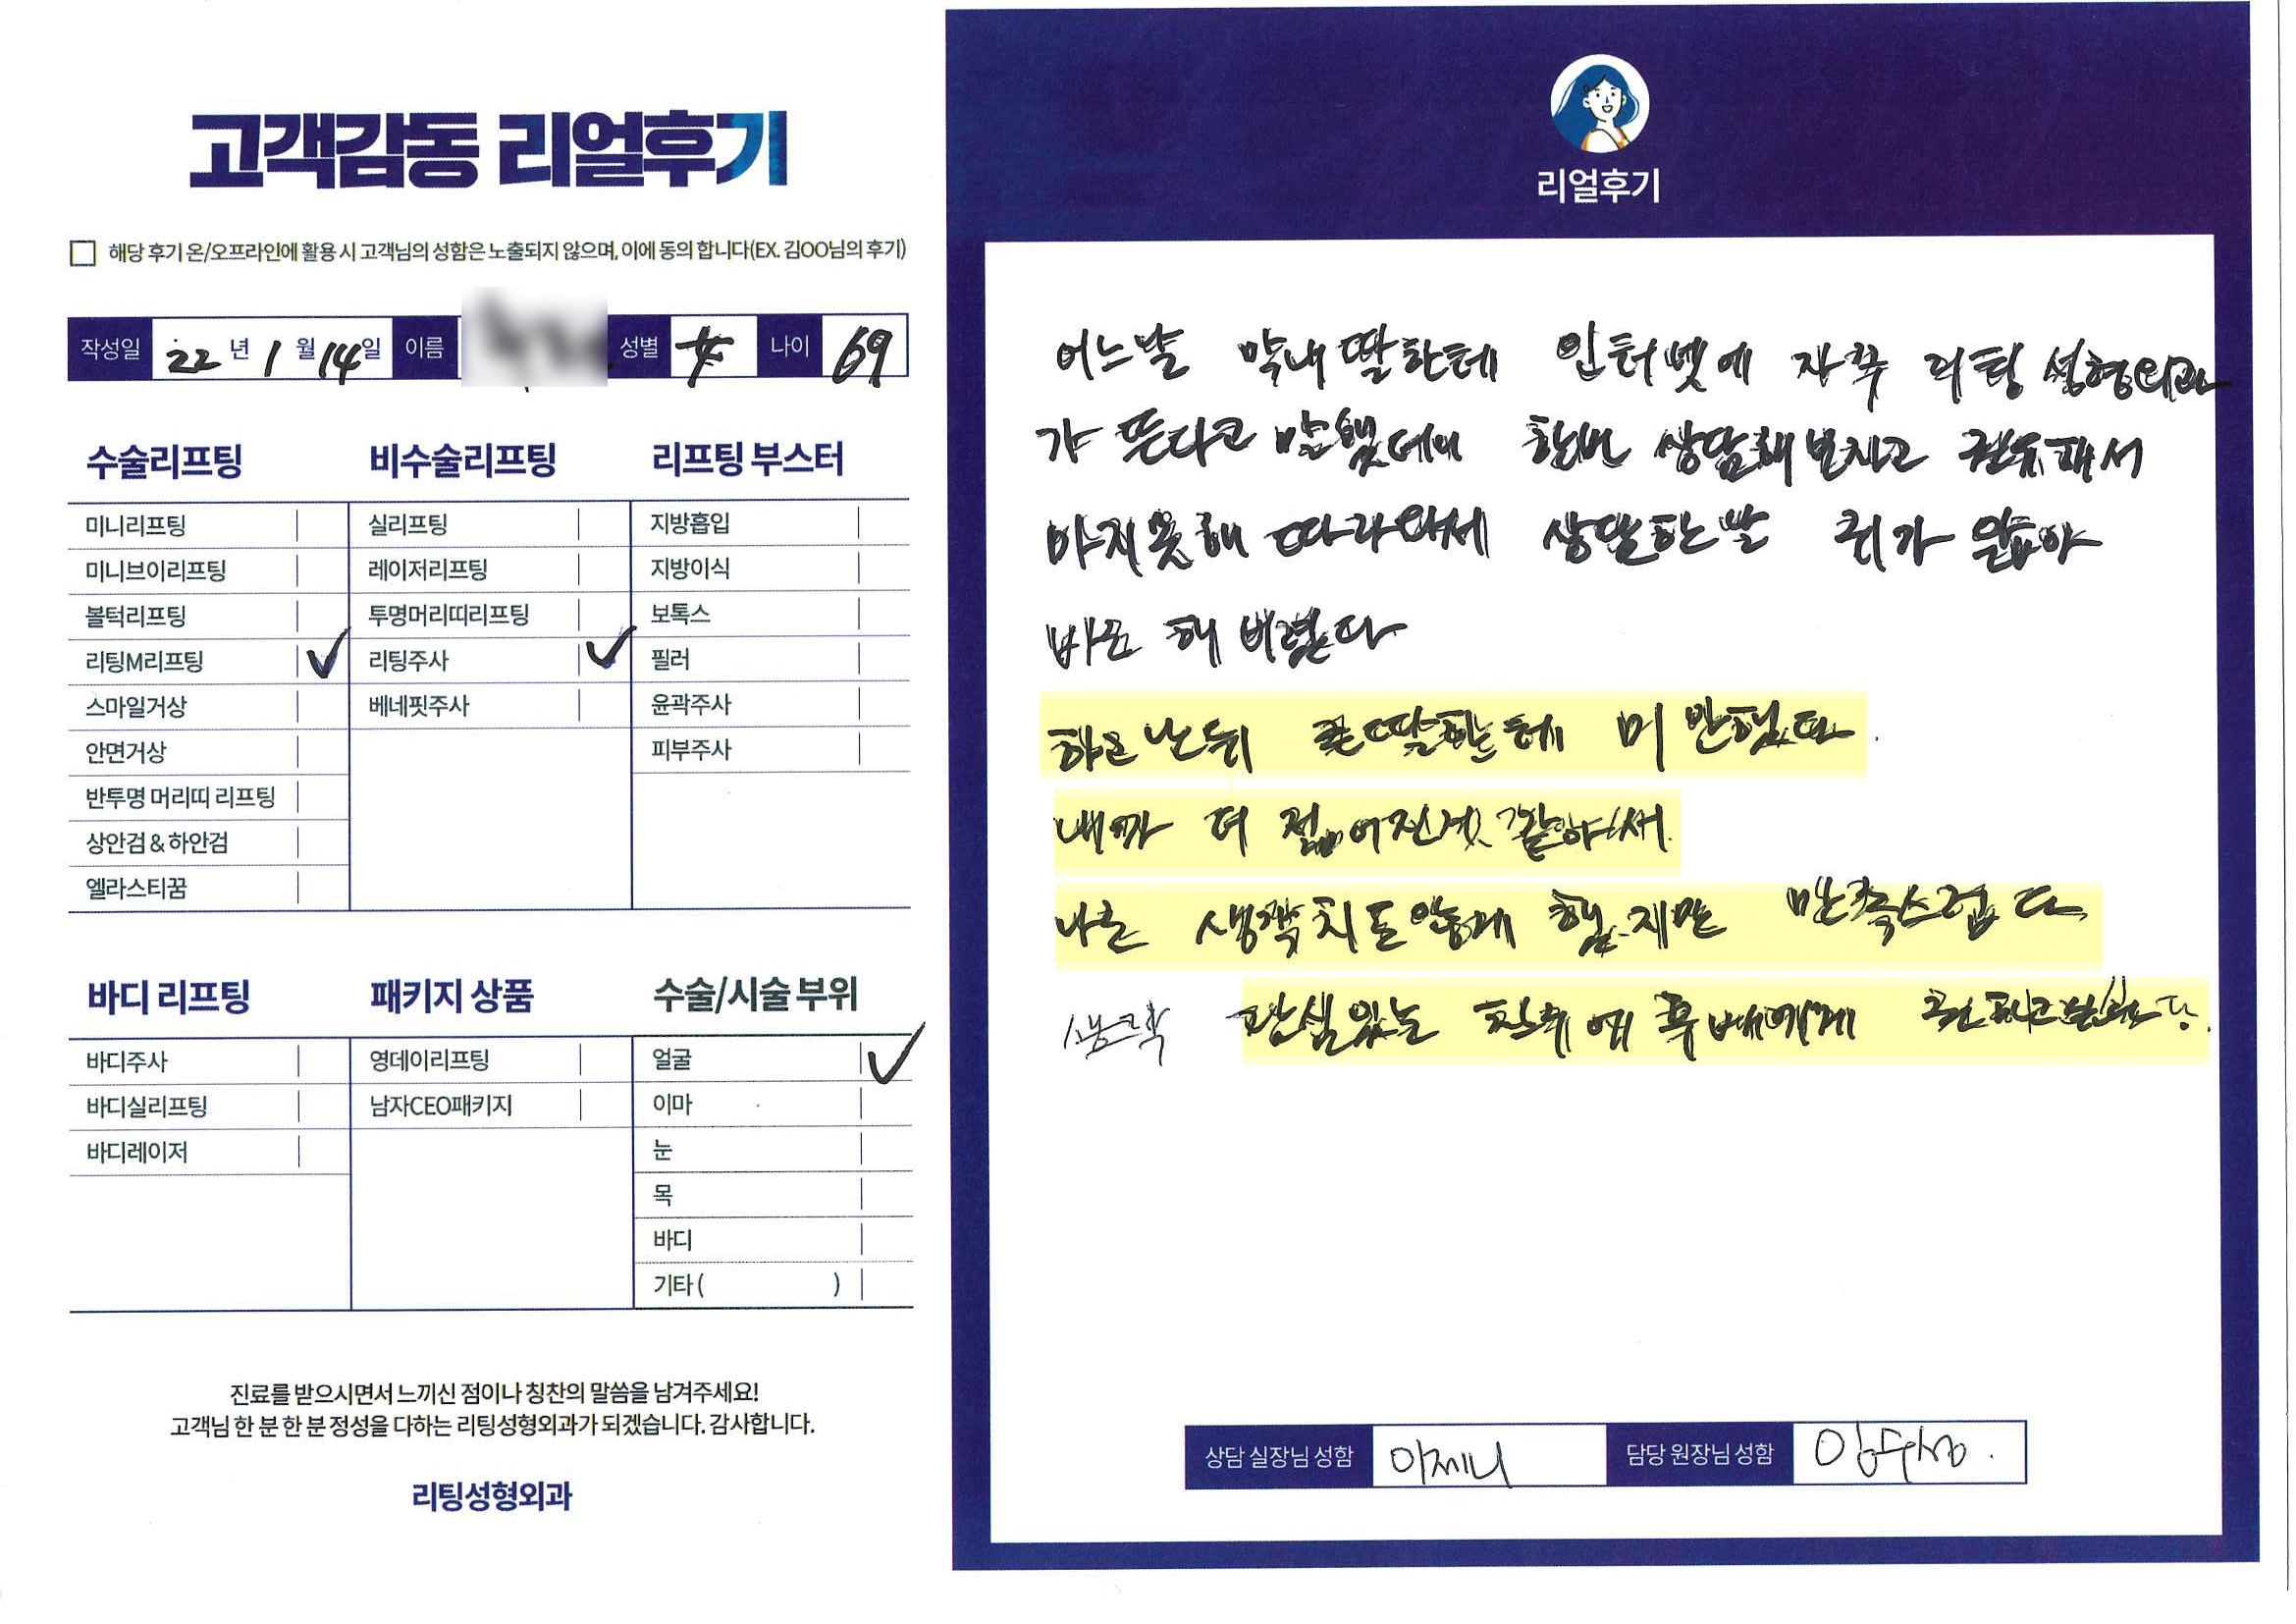 고객감동 리얼후기
해당 후기 온/오프라인에 활용 시 고객님의 성함은 노출되지 않으며, 이에 동의 합니다(EX. 김OO님의 후기)
작성일 22 년 1 월 14 일 이름 성별 女 나이 69
수술리프팅
미니리프팅
미니브이리프팅
볼턱리프팅
리팅M리프팅
스마일거상
안면거상
반투명 머리띠 리프팅
상안검 & 하안검
엘라스티꿈
비수술리프팅
실리프팅
레이저리프팅
투명머리띠리프팅
리팅주사
베네핏주사
리프팅 부스터
지방흡입
지방이식
보톡스
필러
윤곽주사
피부주사
바디 리프팅
바디주사
바디실리프팅
바디레이저
패키지 상품
영데이리프팅
남자CEO패키지
수술/시술 부위
얼굴
이마
눈
목
바디
기타 ( )
진료를 받으시면서 느끼신 점이나 칭찬의 말씀을 남겨주세요!
고객님 한 분 한 분 정성을 다하는 리팅성형외과가 되겠습니다. 감사합니다.
리팅성형외과
리얼후기
어느날 막내딸한테 인터넷에 자꾸 리팅 성형외과
가 뜬다고 말했더니 한번 상담해보자고 권유해서
마지못해 따라와서 상담한날 귀가 얇아
바로 해 버렸다
하고 난뒤 큰딸한테 미안했다.
내가 더 젊어진것 같아서.
나는 생각치도 않게 했지만 만족스럽다
생각 관심있는 친구에 후배에게
상담 실장님 성함 이제니 담당 원장님 성함